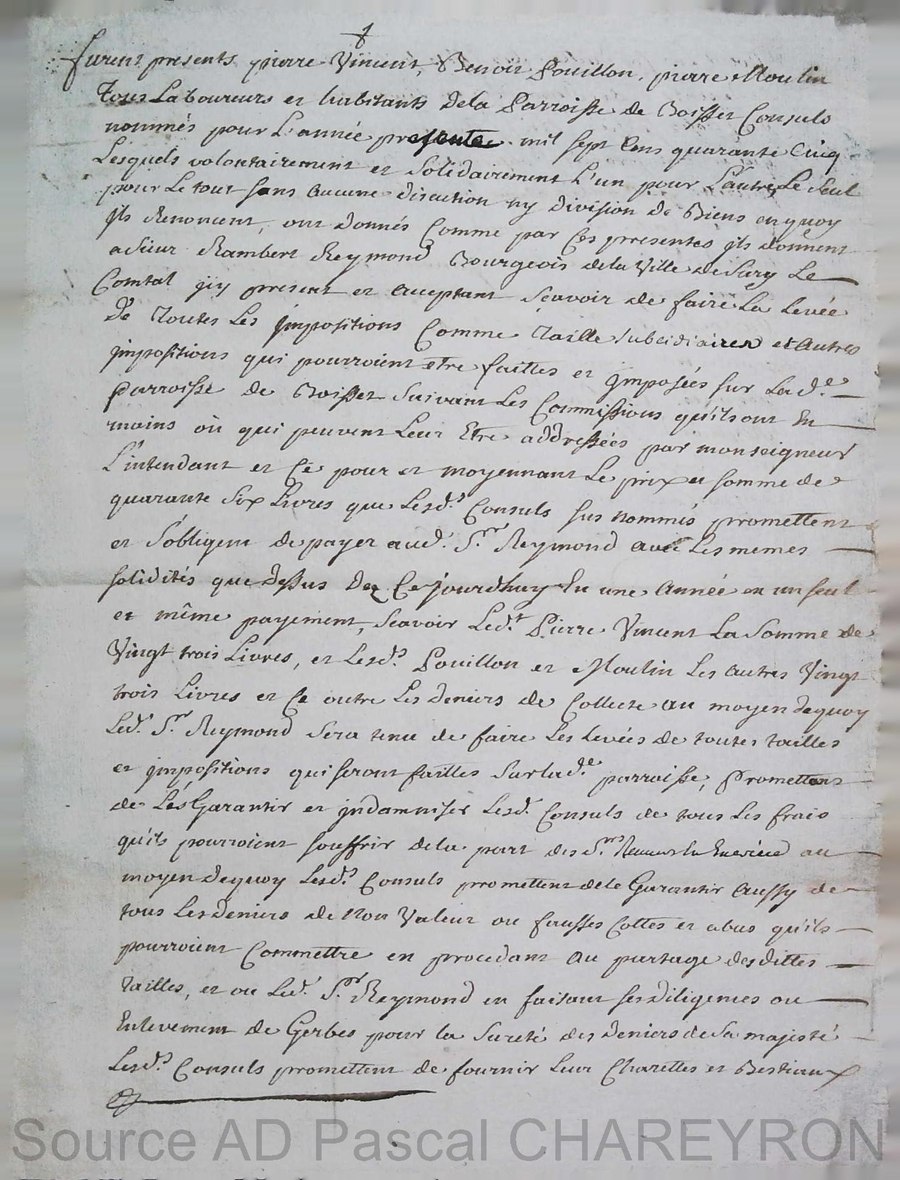 furent presents pierre Vincent, Benoit Pouillon, pierre Moulin
Tous Laboureurs et habitants dela Parroisse de Boisset Consuls
nommés pour L'année presente mil sept Cens quarante Cinq
Lesquels volontairement et Solidairement L'un pour L'autre Le Seul
pour Le tout sans aucune discution ny division de Biens enquoy
ils Renoncent, ont donnés Comme par Ces presentes ils donnent
a Sieur Rambert Reymond Bourgeois dela Ville de Sury Le
Comtal icy present et acceptant Scavoir de faire La Levée
de Toutes Les impositions Comme Taille Subsidiaires et autres
impositions qui pourroient etre faittes et imposées sur Lad.e
parroisse de Boisset Suivant Les Commissions qu'ils ont En
mains où qui peuvent Leur Etre addressées par monseigneur
L'intendant et Ce pour et moyennant Le prix et somme de
quarante Six Livres que Lesd.s Consuls sus nommés promettent
et S'obligent de payer aud. S.r Reymond avec Les memes
soliditésque dessus de Ce jourdhuy En une année en un seul
et même payement, Scavoir Led.t Pierre Vincent La Somme de
Vingt trois Livres, et Lesd.s Pouillon et Moulin Les autres Vingt
trois Livres et Ce outre Les deniers de Collecte au moyen dequoy
Led. S.r Reymond Sera tenu de faire Les Levées de toutes tailles
et impositions qui seront faittes Sur Lad.e parroisse, Promettant
de Les Garantir et indamniser Lesd. Consuls de tous Les frais
qu'ils pourroient souffrir dela part des S.rs au
moyen dequoy Lesd.s Consuls promettent dele Garantir aussy de
tous Les deniers de Non Valeur ou fausses Cottes et abus qu'ils
pourroient Commettre en procedant au partage desdittes
Tailles, et ou Led. S.r Reymond en faisant ses diligences ou
Enlevement de Gerbes pour la Sureté des deniers de Sa majesté
Lesd.s Consuls promettent de fournir Leur Charettes et Bestiaux
Source AD Pascal CHAREYRON